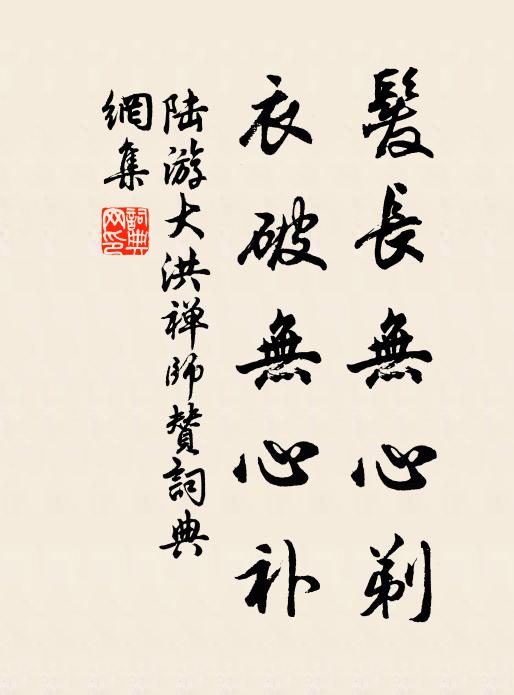 髮長無心剃
衣破無心补
陆游大洪禅師賛詞典
網集
詞典
网印